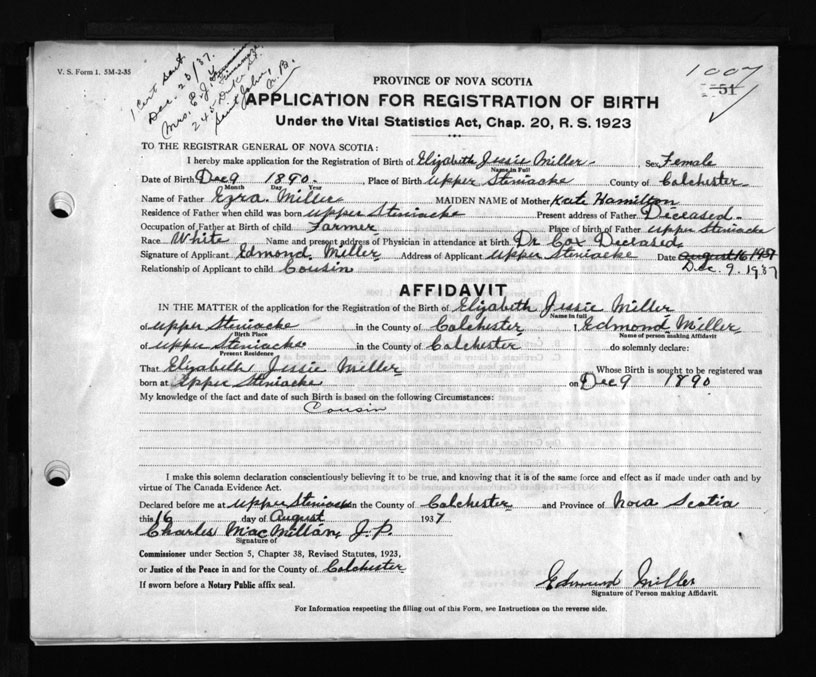 V. S. Form 1. 5M-2-35
1 Cert sent
Dec. 20/37.
Mrs. E. J.
24 St.
Saint John,
N. B.
1007
51
PROVINCE OF NOVA SCOTIA
APPLICATION FOR REGISTRATION OF BIRTH
Under the Vital Statistics Act, Chap. 20, R. S. 1923
TO THE REGISTRAR GENERAL OF NOVA SCOTIA:
I hereby make application for the Registration of Birth of Elizabeth Jessie Miller Sex Female
Name in Full
Date of Birth Dec 9 1890. , Place of Birth Upper Steniacke County of Colchester
Month Day Year
Name of Father Ezra Miller MAIDEN NAME of Mother Kate Hamilton
Residence of Father when child was born Upper Steniacke Present address of Father Deceased
Occupation of Father at Birth of child Farmer Place of Birth of father Upper Steniacke
Race White Name and present address of Physician in attendance at birth Dr Cox Deceased
Signature of Applicant Edmond Miller Address of Applicant Upper Steniacke Date August 16 1937
Dec. 9. 1937
Relationship of Applicant to child Cousin
AFFIDAVIT
IN THE MATTER of the application for the Registration of the Birth of Elizabeth Jessie Miller
Name in full
of Upper Steniacke in the County of Colchester I Edmond Miller
Birth Place Name of person making Affidavit
of Upper Steniacke in the County of Colchester do solemnly declare:
Present Residence
That Elizabeth Jessie Miller Whose Birth is sought to be registered was
born at Upper Steniacke on Dec 9 1890
My knowledge of the fact and date of such Birth is based on the following Circumstances:
Cousin
I make this solemn declaration conscientiously believing it to be true, and knowing that it is of the same force and effect as if made under oath and by
virtue of The Canada Evidence Act.
Declared before me at Upper Steniacke in the County of Colchester and Province of Nova Scotia
this 16 day of August 1937
Charles MacMillan, J.P.
Signature of
Commissioner under Section 5, Chapter 38, Revised Statutes, 1923,
or Justice of the Peace in and for the County of Colchester
If sworn before a Notary Public affix seal.
Edmund Miller
Signature of Person making Affidavit.
For Information respecting the filling out of this Form, see Instructions on the reverse side.